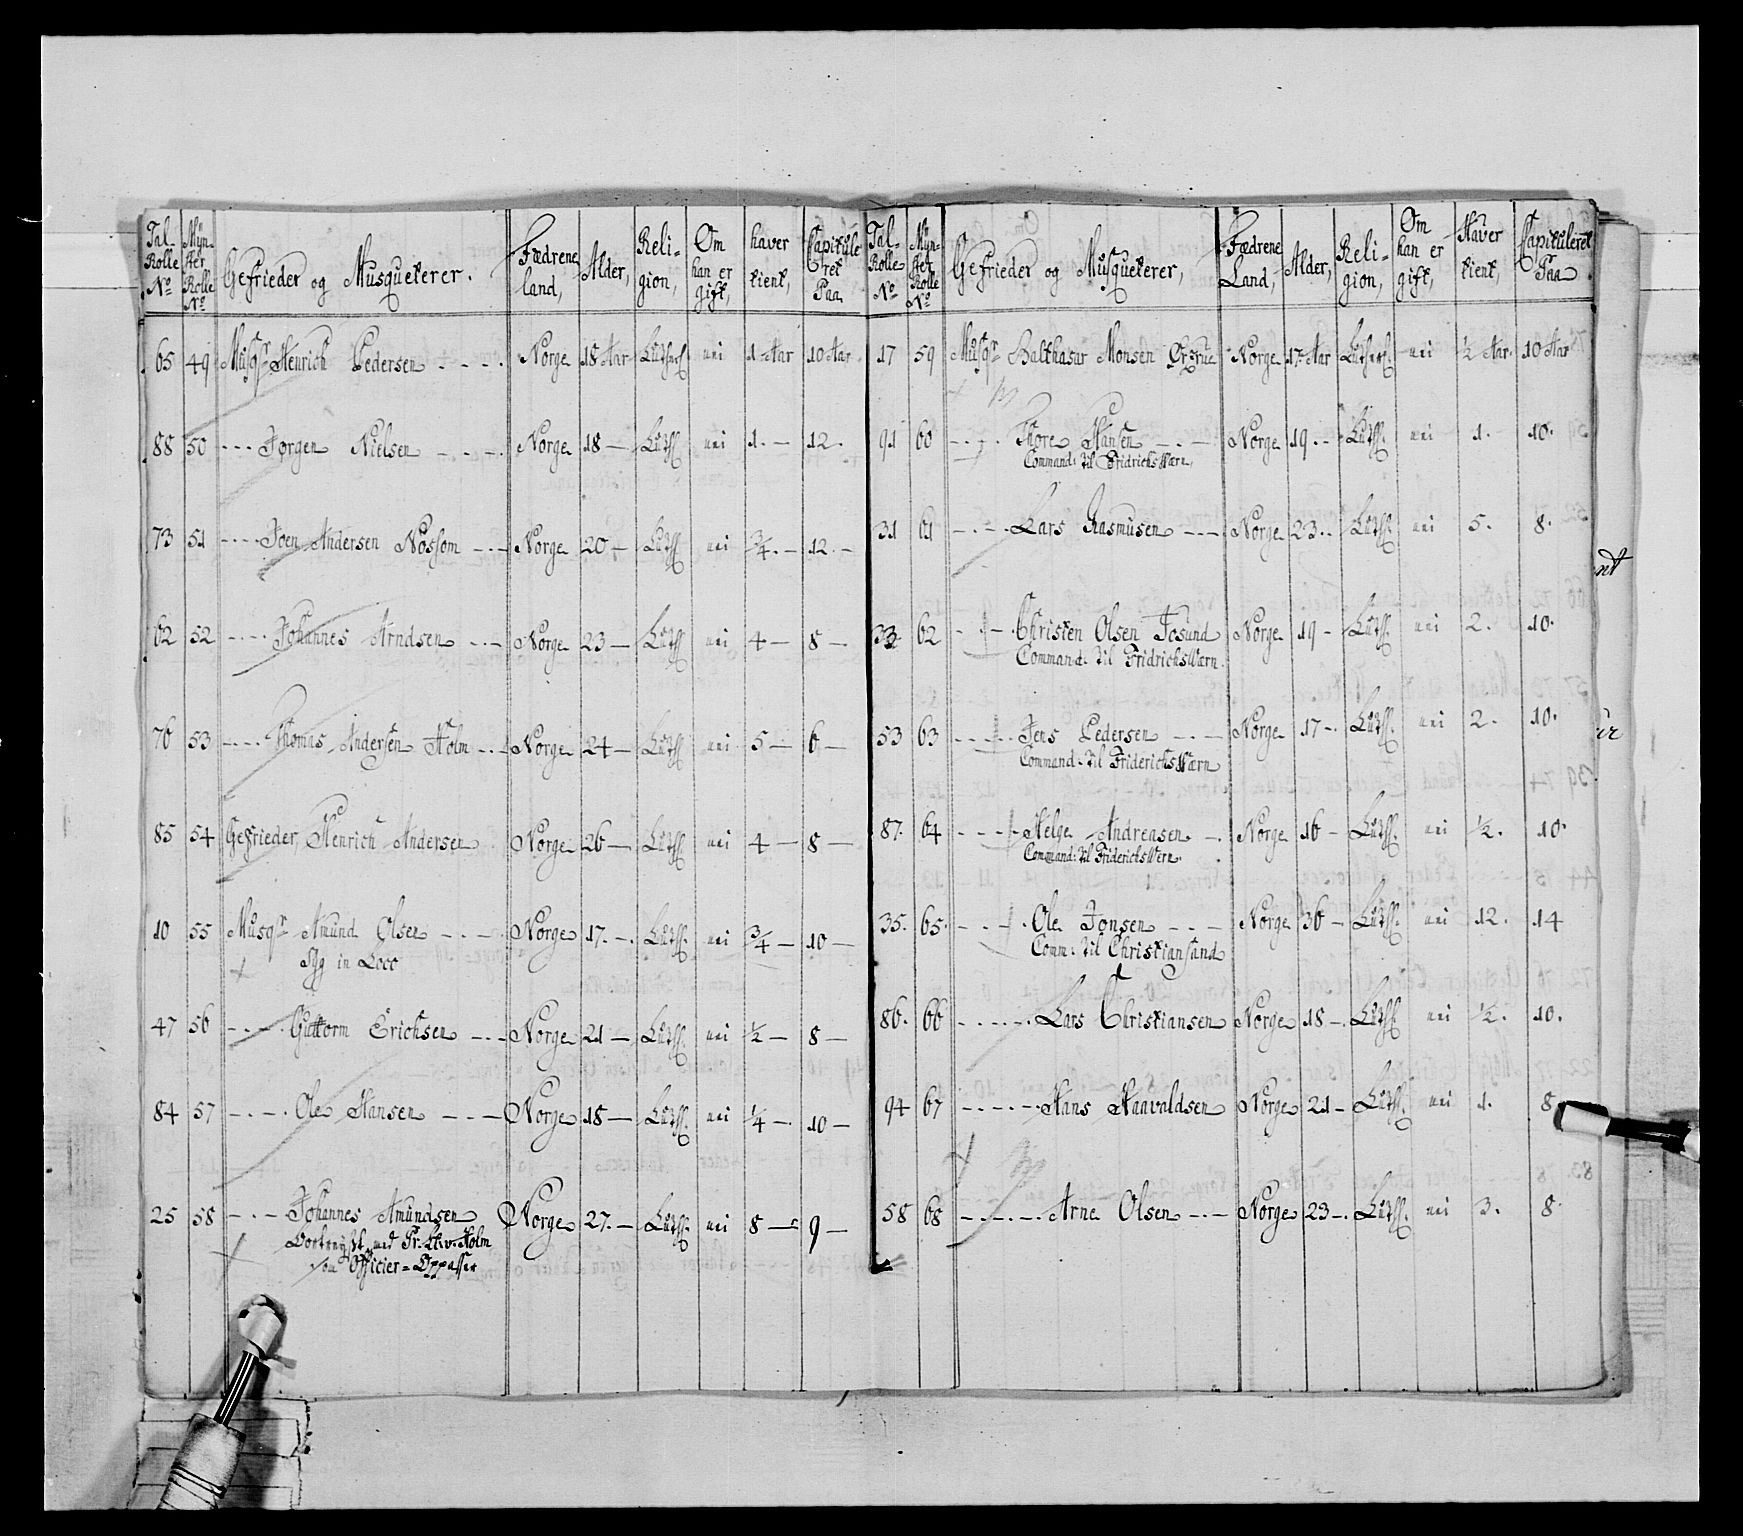 Tal-Rolle No Mynster Rolle No Gefrieder og Musqueterer. Fædrene land, Alder, Religion, Om han er gift, haver tient, Capituleret Paa
65 49 Musqr Henrich Pedersen Norge 18 Aar Luthersk nei 1 Aar 10 Aar
88 50 Jørgen Nielsen Norge 18 — Luth. nei 1. — 12.
73 51 Joen Andersen Nossom Norge 20 — Luth. nei 3/4. — 12. —
62 52 Johannes Arndsen Norge 23 — Luth. nei 4 — 8 —
76 53 Thomas Andersen Holm Norge 24 — Luth. nei 5 — 6 —
85 54 Gefrieder, Henrich Andersen Norge 26 — Luth. nei 4 — 8 —
10 55 Musqr Amund Olsen Norge 17. — Luth. nei 3/4 — 10 —
Syg in Loco
47 56 Guttorm Erichsen Norge 21 — Luth. nei 1/2 — 8 —
84 57 Ole Hansen Norge 18 — Luth. nei 1/4 — 10 —
25 58 Johannes Amundsen Norge 27. — Luth. nei 8 — 9 —
med Pr: Lt. v. Holm
som Officier = Oppasser
Tal-Rolle No Mynster Rolle No Gefrieder og Musqueterer, Fædrene Land, Alder, Religion, Om han er gift, Haver tient, Capituleret Paa
17 59 Musqr Balthasar Monsen Norge 17 Aar Luthersk nei 1/2 Aar 10 Aar
91 60 Thore Hansen Norge 19. Luth. nei 1. 10.
Command: til FridrichsWærn,
31 61 Lars Rasmusen Norge 23. Luth. nei 5. 8.
33 62 Christen Olsen Josund Norge 19 — Luth. nei 2. 10.
Command: til FridrichsWærn.
53 63 Jens Pedersen Norge 17 — Luth. nei 2. 10.
Command: til FriderichsWærn
87. 64 Helge Andreasen Norge 16 — Luth. nei 1/2. 10.
Command: til FriderichsWern.
35. 65. Ole Jonsen Norge 36 — Luth. nei 12. 14
Comm: til Christiansand
86. 66 Lars Christiansen Norge 18 — Luth. nei 1/2. 10.
94 67 Hans Haavaldsen Norge 21 — Luth. nei 1. 8
58 68 Arne Olsen Norge 23 — Luth. nei 3. 8.